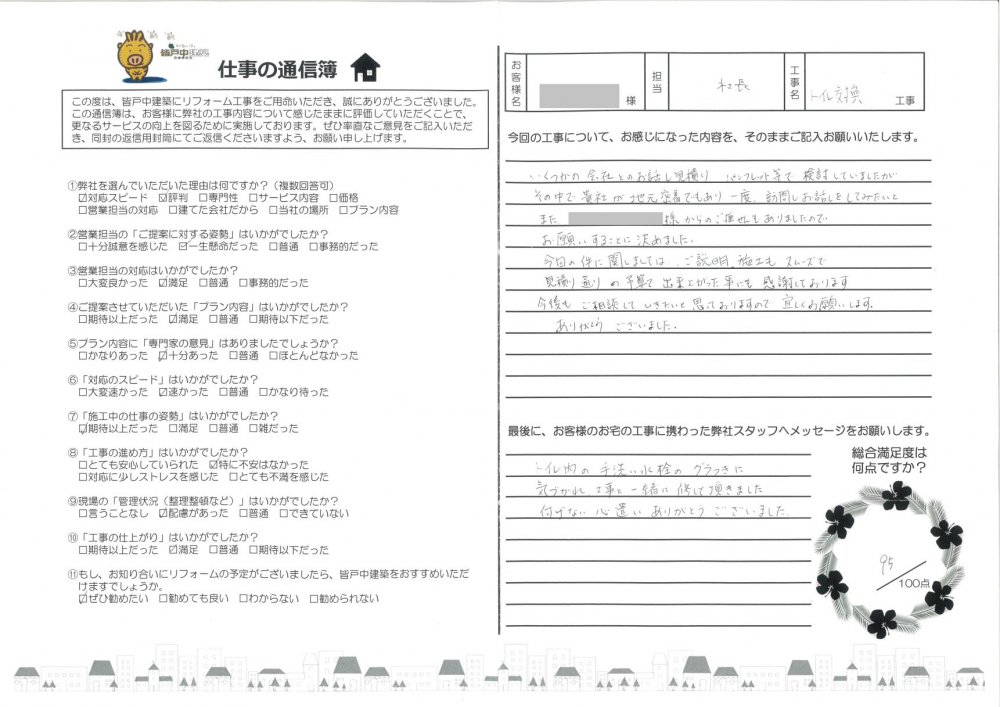 皆戸中建築
仕事の通信簿
この度は、皆戸中建築にリフォーム工事をご用命いただき、誠にありがとうございました。
この通信簿は、お客様に弊社の工事内容について感じたままに評価していただくことで、
更なるサービスの向上を図るために実施しております。ぜひ率直なご意見をご記入いただ
き、同封の返信用封筒にてご返信くださいますよう、お願い申し上げます。
①弊社を選んでいただいた理由は何ですか？（複数回答可）
☑対応スピード ☑評判 □専門性 □サービス内容 □価格
□営業担当の対応 □建てた会社だから □当社の場所 □プラン内容
②営業担当の「ご提案に対する姿勢」はいかがでしたか？
□十分誠意を感じた ☑一生懸命だった □普通 □事務的だった
③営業担当の対応はいかがでしたか？
□大変良かった ☑満足 □普通 □事務的だった
④ご提案させていただいた「プラン内容」はいかがでしたか？
□期待以上だった ☑満足 □普通 □期待以下だった
⑤プラン内容に「専門家の意見」はありましたでしょうか？
□かなりあった ☑十分あった □普通 □ほとんどなかった
⑥「対応のスピード」はいかがでしたか？
□大変速かった ☑速かった □普通 □かなり待った
⑦「施工中の仕事の姿勢」はいかがでしたか？
☑期待以上だった □満足 □普通 □雑だった
⑧「工事の進め方」はいかがでしたか？
□とても安心していられた ☑特に不安はなかった
□対応に少しストレスを感じた □とても不満を感じた
⑨現場の「管理状況（整理整頓など）」はいかがでしたか？
□言うことなし ☑配慮があった □普通 □できていない
⑩「工事の仕上がり」はいかがでしたか？
□期待以上だった ☑満足 □普通 □期待以下だった
⑪もし、お知り合いにリフォームの予定がございましたら、皆戸中建築をおすすめいただ
けますでしょうか。
☑ぜひ勧めたい □勧めても良い □わからない □勧められない
お客様名 様 担当 社長 工事名 トイレ交換 工事
今回の工事について、お感じになった内容を、そのままご記入お願いいたします。
いくつかの会社とのお話し見積り パンフレット等で検討していましたが
その中で貴社が地元密着でもあり一度、訪問しお話しをしてみたいと
また 様からのご推せんもありましたので
お願いすることに決めました。
今回の件に関しましては、ご説明、施工も スムーズで
見積り通りの予算で出来上がった事にも感謝しております
今後も ご相談して いきたいと思っておりますので宜しくお願いします。
ありがとう ございました。
最後に、お客様のお宅の工事に携わった弊社スタッフへメッセージをお願いします。
トイレ内の手洗い水栓のグラつきに
気づかれ 工事と一緒に修して頂きました
付げない心遣いありがとうございました。
総合満足度は
何点ですか？
95
／100点